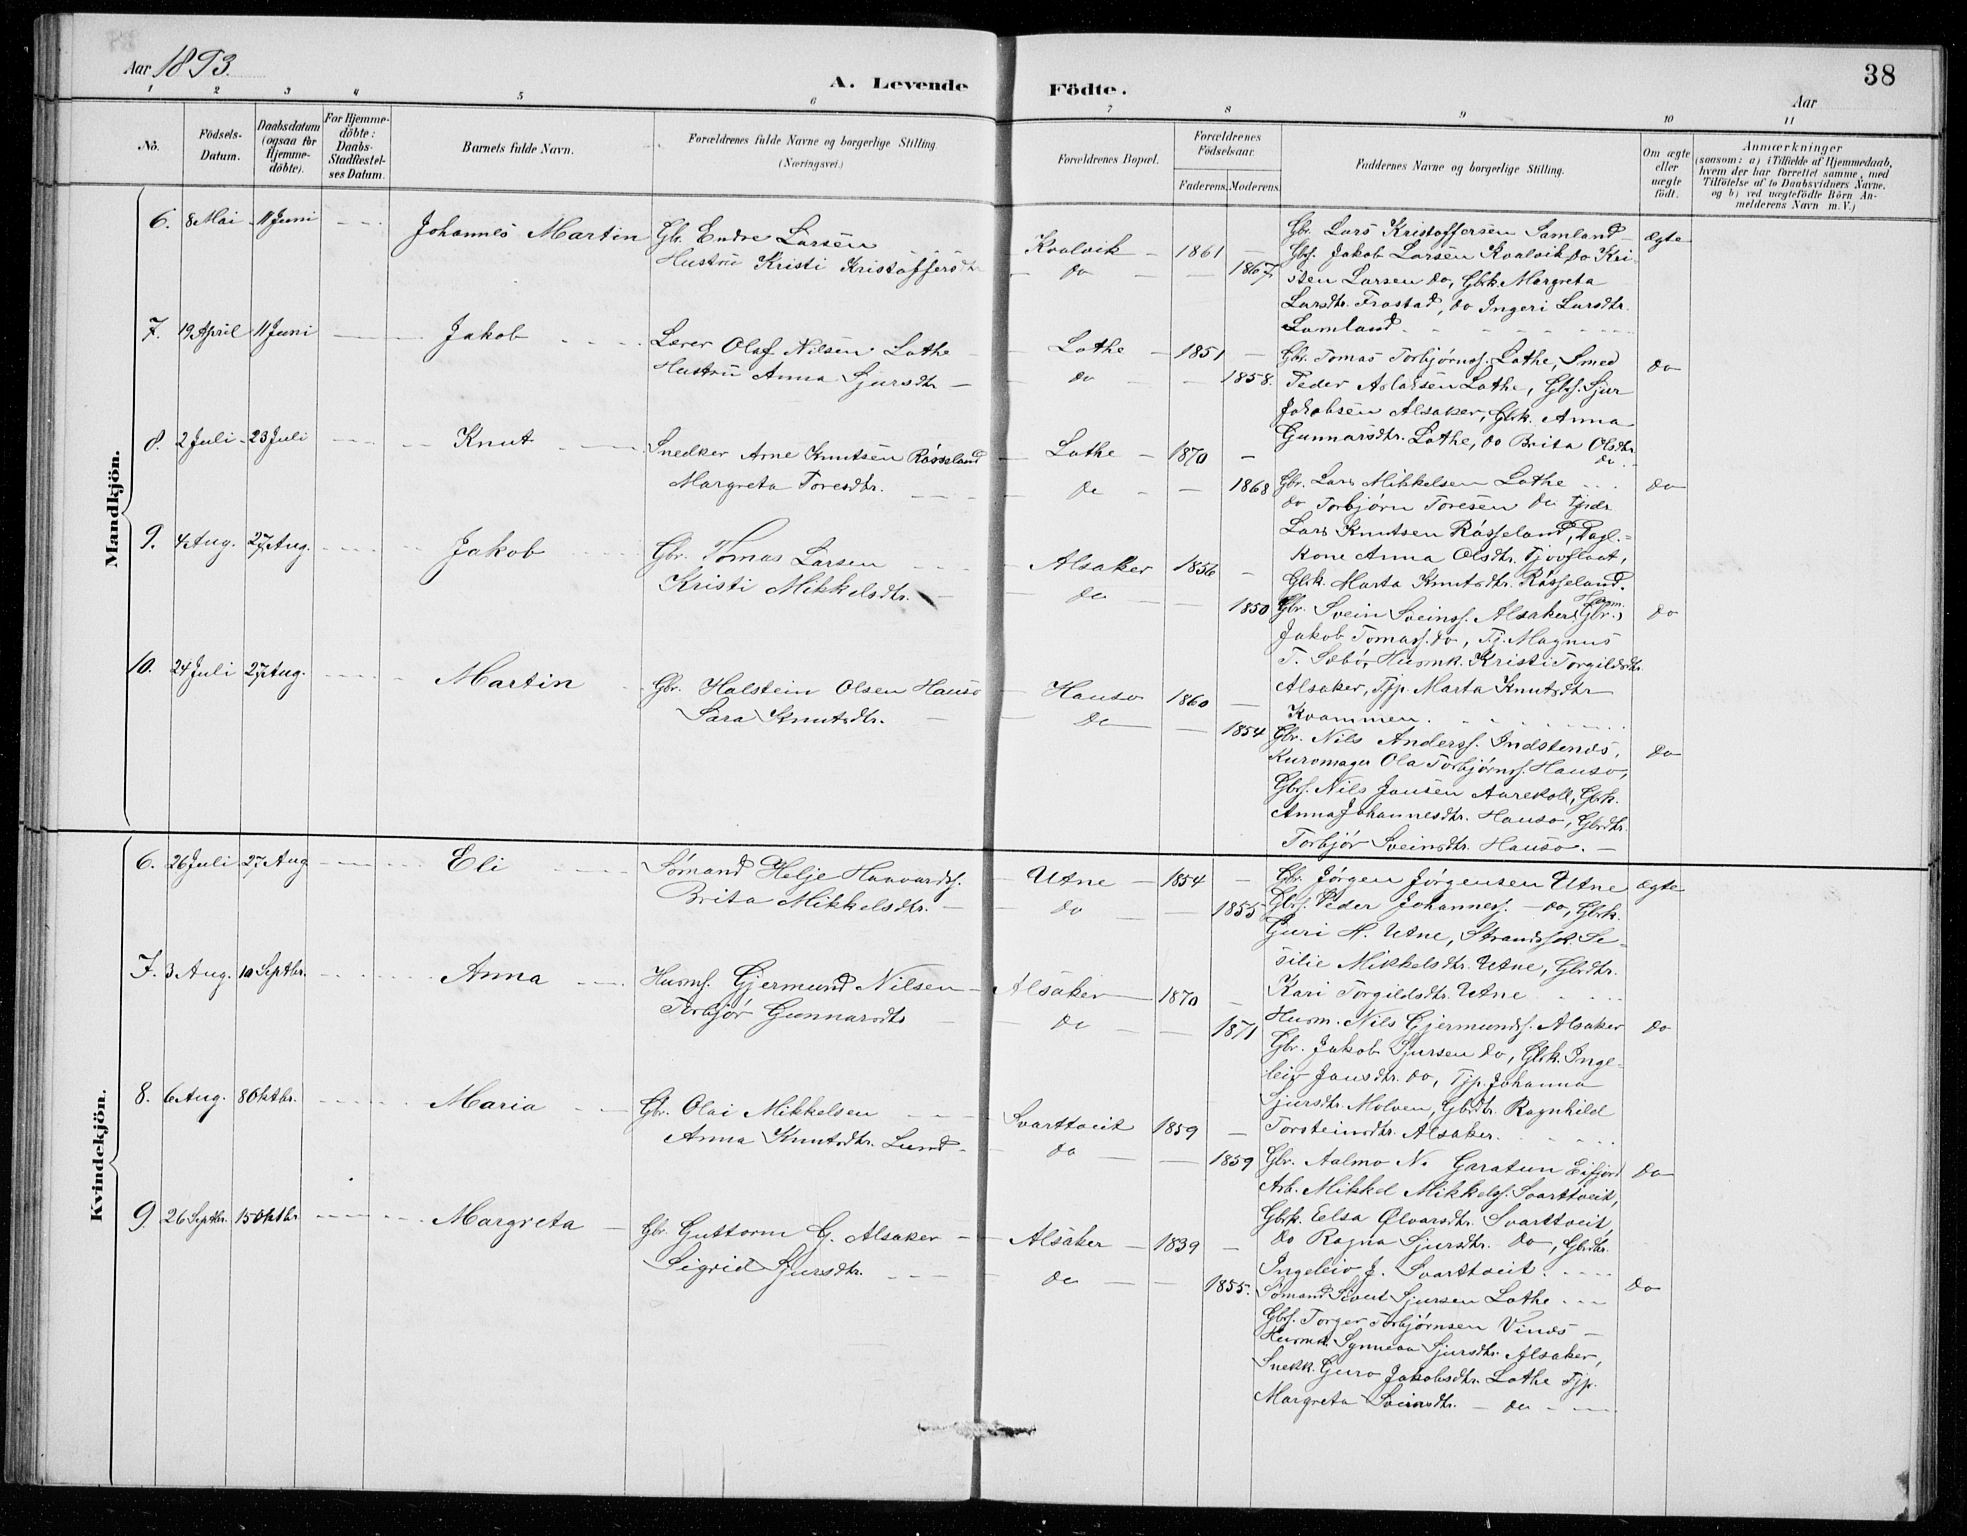 Aar 1893.
A. Levende
Födte.
Aar
38
1 2 3 4 5 6 7 8 9 10 11
No.
Födsels-Datum.
Daabsdatum (ogsaa for Hjemme-döbte).
For Hjemme-döbte: Daabs-Stadfæstel-ses Datum.
Barnets fulde Navn.
Forældrenes fulde Navne og borgerlige Stilling. (Næringsvei.)
Forældrenes Bopæl.
Forældrenes Födselsaar.
Faderens. Moderens.
Faddernes Navne og borgerlige Stilling.
Om ægte eller uægte født.
Anmærkninger
(saasom: a) i Tilfælde af Hjemmedaab,
hvem der har forrettet samme, med
Tilföielse af to Daabsvidners Navne.
og b) ved uægtefödte Börn An-
melderens Navn m. V.)
Mandkjön.
6. 8 Mai 11 Juni Johannes Martin Gbr. Endre Larsen Kvalvik 1861 ægte
Hustru Kristi Kristoffersdtr do 1867.
Gbr. Lars Kristoffersen Samland
Gbs. Jakob Larsen Kvalvik, do Kri-
sten Larsen do, Gbrk. Margreta
Larsdtr. Trostad, do Ingeri Larsdtr.
Samland
7. 19 April 11 Juni Jakob Lærer Olaf Nilsen Lothe Lothe 1851 do
Hustru Anna Sjursdtr do 1858.
Gbr. Tomas Torbjørnss. Lothe, Smed
Peder Aslaksen Lothe, Gbs. Sjur
Jakobsen Alsaker, Gbrk. Anna
Gunnarsdtr. Lothe, do Brita Olsdtr.
do
8. 2 Juli 23 Juli Knut Snedker Arne Knutsen Røsseland Lothe 1870 do
Margreta Toresdtr. do 1868
Gbr. Lars Mikkelsen Lothe
do Torbjørn Toresen do
Lars Knutsen Røsseland, Dagl.-
kone Anna Olsdtr. Tjovflaat,
Gbrk. Marta Knutsdtr. Røsseland.
9. 4 Aug. 27 Aug. Jakob Gbr. Tomas Larsen Alsaker 1856 do
Kristi Mikkelsdtr. do 1850
Gbr. Svein Sveinss. Alsaker, Husm. (Gbr.)
Jakob Tomass. do, Tj. Magnus
T. Sæbø, Husmk. Kristi Torgildsdtr.
Alsaker, Tjp. Marta Knutsdtr
Kvammen.
10. 24 Juli 27 Aug. Martin Gbr. Halstein Olsen Hauso Hauso 1860 do
Sara Knutsdtr. do 1854
Gbr. Nils Anderss. Indstenæs,
Kurvmager Ola Torbjørnss. Hauso,
Gbs. Nils Jansen Aarekoll, Gbrk.
Anna Johannesdtr. Hauso, Gbrdtr.
Torbjør Sveinsdtr. Hauso.
Kvindekjön.
6. 26 Juli 27 Aug. Eli Sømand Helje Haavardss. Utne 1854 ægte
Brita Mikkelsdtr. do 1855
Gbr. Jørgen Jørgensen Utne
Gbs. Peder Johanness. do, Gbrk.
Guri H. Utne, Strands. Se-
silie Mikkelsdtr. Utne, Gbrdtr.
Kari Torgildsdtr. Utne
7. 3 Aug. 10 Septbr. Anna Husms. Gjermund Nilsen Alsaker 1870 do
Torbjør Gunnarsdtr do 1871
Husm. Nils Gjermundss. Alsaker
Gbr. Jakob Sjursen do, Gbrk. Inge-
leiv Jansdtr. do, Tjp. Johanna
Sjursdtr. Molven, Gbrdtr. Ragnhild
Torsteinsdtr. Alsaker.
8. 6 Aug. 8 Oktbr. Maria Gbr. Olai Mikkelsen Svarttveit 1859 do
Anna Knutsdtr. Lund do 1859
Gbr. Aalmo N. Garatun Eifjord
Arb. Mikkel Mikkelss. Svarttveit,
Gbrk. Eelsa Ølvarsdtr. Svarttveit,
do Ragna Sjursdtr. do, Gbrdtr.
Ingeleiv J. Svarttveit.
9. 26 Septbr. 15 Oktbr Margreta Gbr. Guttorm G. Alsaker Alsaker 1839 do
Sigrid Sjursdtr. do 1855.
Sømand Sivert Sjursen Lothe
Gbs. Torger Torbjørnsen Vinæs
Husmk. Synneva Sjursdtr. Alsaker,
Snekk. Guro Jakobsdtr. Lothe Tjp.
Margreta Sveinsdtr. do